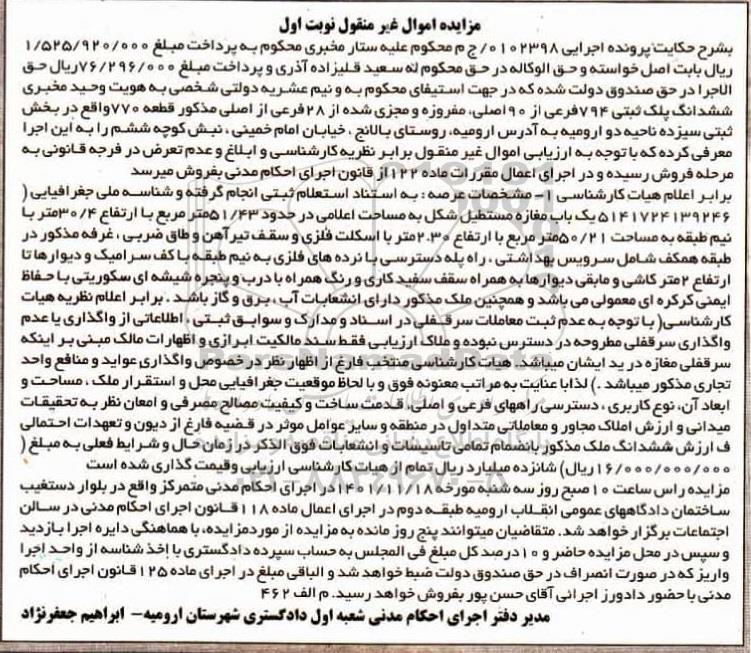 مزایده اموال غیر منقول نوبت اول
بشرح حکایت پرونده اجرایی ۰۱۰۲۳۹۸/ ج م محکوم علیه ستار مخبری محکوم به پرداخت مبلغ ۱/۵۲۵/۹۲۰/۰۰۰
ریال بابت اصل خواسته و حق الوکاله در حق محکوم له سعید قلیزاده آذری و پرداخت مبلغ ۷۶/۲۹۶/۰۰۰ریال حق
الاجرا در حق صندوق دولت شده که در جهت استیفای محکوم به و نیم عشریه دولتی شخصی به هویت وحید مخبری
ششدانگ پلک ثبتی ۷۹۴فرعی از ۹۰اصلی، مفروزه و مجزی شده از ۲۸فرعی از اصلی مذکور قطعه ۷۷۰واقع در بخش
ثبتی سیزده ناحیه دو ارومیه به آدرس ارومیه، روستای بالانج ، خیابان امام خمینی ، نبش کوچه ششم را به این اجرا
معرفی کرده که با توجه به ارزیابی اموال غیر منقول برابر نظریه کارشناسی و ابلاغ و عدم تعرض در فرجه قانونی به
مرحله فروش رسیده و در اجرای اعمال مقررات ماده ۱۲۲از قانون اجرای احکام مدنی بفروش میرسد
برابر اعلام هیات کارشناسی (۱- مشخصات عرصه : به استناد استعلام ثبتی انجام گرفته و شناسه ملی جغرافیایی (
۵۱۴۱۷۲۴۱۳۹۲۴۶ یک باب مغازه مستطیل شکل به مساحت اعلامی در حدود ۵۱/۴۳متر مربع با ارتفاع ۳۰/۴متر با
نیم طبقه به مساحت ۵۰/۲۱متر مربع با ارتفاع ۲.۳۰متر با اسکلت فلزی و سقف تیرآهن و طاق ضربی ، غرفه مذکور در
طبقه همکف شامل سرویس بهداشتی ، راه پله دسترسی با نرده های فلزی به نیم طبقه با کف سرامیک و دیوارها تا
ارتفاع ۲متر کاشی و مابقی دیوارها به همراه سقف سفید کاری و رنگ همراه با درب و پنجره شیشه ای سکوریتی با حفاظ
ایمنی کرکره ای معمولی می باشد و همچنین ملک مذکور دارای انشعابات آب ، برق و گاز باشد . برابر اعلام نظریه هیات
کارشناسی( با توجه به عدم ثبت معاملات سرقفلی در اسناد و مدارک و سوابق ثبتی ، اطلاعاتی از واگذاری یا عدم
واگذاری سرقفلی مطروحه در دسترس نبوده و ملاک ارزیابی فقط سند مالکیت ابرازی و اظهارات مالک مبنی بر اینکه
سرقفلی مغازه در ید ایشان میباشد. هیات کارشناسی منتخب فارغ از اظهار نظر در خصوص واگذاری عواید و منافع واحد
تجاری مذکور میباشد .) لذا با عنایت به مراتب معنونه فوق و با لحاظ موقعیت جغرافیایی محل و استقرار ملک ، مساحت و
ابعاد آن، نوع کاربری ، دسترسی راههای فرعی و اصلی، قدمت ساخت و کیفیت مصالح مصرفی و امعان نظر به تحقیقات
میدانی و ارزش املاک مجاور و معاملاتی متداول در منطقه و سایر عوامل موثر در قضیه فارغ از دیون و تعهدات احتمالی
ف ارزش ششدانگ ملک مذکور بانضمام تمامی تاسیسات و انشعابات فوق الذکر در زمان حال و شرایط فعلی به مبلغ (
۱۶/۰۰۰/۰۰۰/۰۰۰ریال) شانزده میلیارد ریال تمام از هیات کارشناسی ارزیابی و قیمت گذاری شده است
مزایده راس ساعت ۱۰ صبح روز سه شنبه مورخه ۱۴۰۱/۱۱/۱۸در اجرای احکام مدنی متمرکز واقع در بلوار دستغیب
ساختمان دادگاههای عمومی انقلاب ارومیه طبقه دوم در اجرای اعمال ماده ۱۱۸قانون اجرای احکام مدنی در سالن
اجتماعات برگزار خواهد شد. متقاضیان میتوانند پنج روز مانده به مزایده از مورد مزایده، با هماهنگی دایره اجرا بازدید
و سپس در محل مزایده حاضر و ۱۰درصد کل مبلغ فی المجلس به حساب سپرده دادگستری با اخذ شناسه از واحد اجرا
واریز که در صورت انصراف در حق صندوق دولت ضبط خواهد شد و الباقی مبلغ در اجرای ماده ۱۲۵قانون اجرای احکام
مدنی با حضور دادورز اجرائی آقای حسن پور بفروش خواهد رسید. م الف ۴۶۲
مدیر دفتر اجرای احکام مدنی شعبه اول دادگستری شهرستان ارومیه- ابراهیم جعفرنژاد